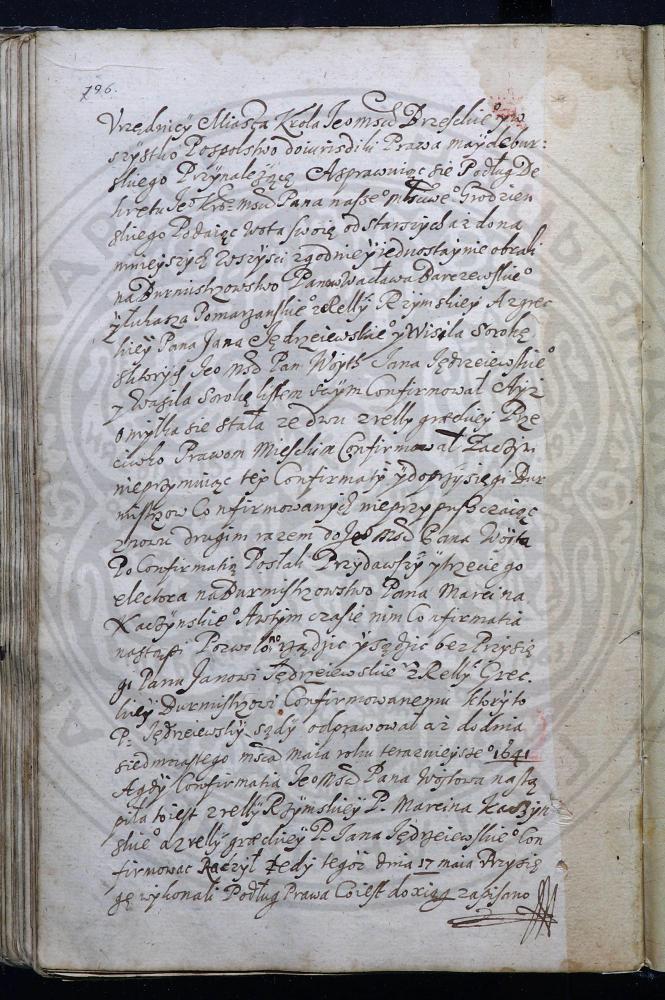 196.
Vrzędnicy Miasta Krola Jeo Msci Brzeskieo y w
szystko Pospolstwo do iurisdiki Prawa maydebur:
skiego Przynależące A sprawuiąc się Podług De
kretu Jeo Kro: Msci Pana naszeo Grodzien
skiego Podaiąc Wota swoie od starszych aż do na
mnieyszych Wszyści zgodniey y iednostaynie obrali
na Burmistrzowstwo Panow Wacława Barczewskieo
y Łukasza Pomarzanskieo z Relly Rzymskiey A z grec
kiey Pana Jana Jędrzeiewskieo y Wasila Sorokę
Ktorych Jeo Msci Pan Woyt Jana Jędrzeiewskieo
y Wasila Sorokę listem swym Confirmował A iż
omyłka się stała że dwu z relly greckiey Prze
ciwko Prawom Mieskim Confirmował Zaczym
nieprzymuiąc tey Confirmaty y do przysięgi Bur
mistrzow Confirmowanych nieprzypuszczaiąc
znowu drugim razem do Jeo Msci Pana Woyta
Po Confirmatią Posłali Przydawszy y trzeciego
electora na Burmistrzowstwo Pana Marcina
Kaczynskieo A w tym czasie nim Confirmatia
nastąpi Pozwolono rządzic y sędzic bez Przysię
gi Panu Janowi Jędrzeiewskieo z Relly Grec
kiey Burmistrzowi Confirmowanemu ktory to
P. Jędrzeiewsky sądy odprawował aż do dnia
siedmnastego msca Maia roku teraznieyszeo 1641
A gdy Confirmatia Jeo Msci Pana Woytowa nastą
piła to iest z relly Rzymskiey P. Marcina Kaczyn
skieo a z relly greckiey P. Jana Jędrzeiewskieo Con
firmowac Raczył Tedy tegoż dnia 17 maia Przysię
gę wykonali Podług Prawa Co iest do xiąg zapisano